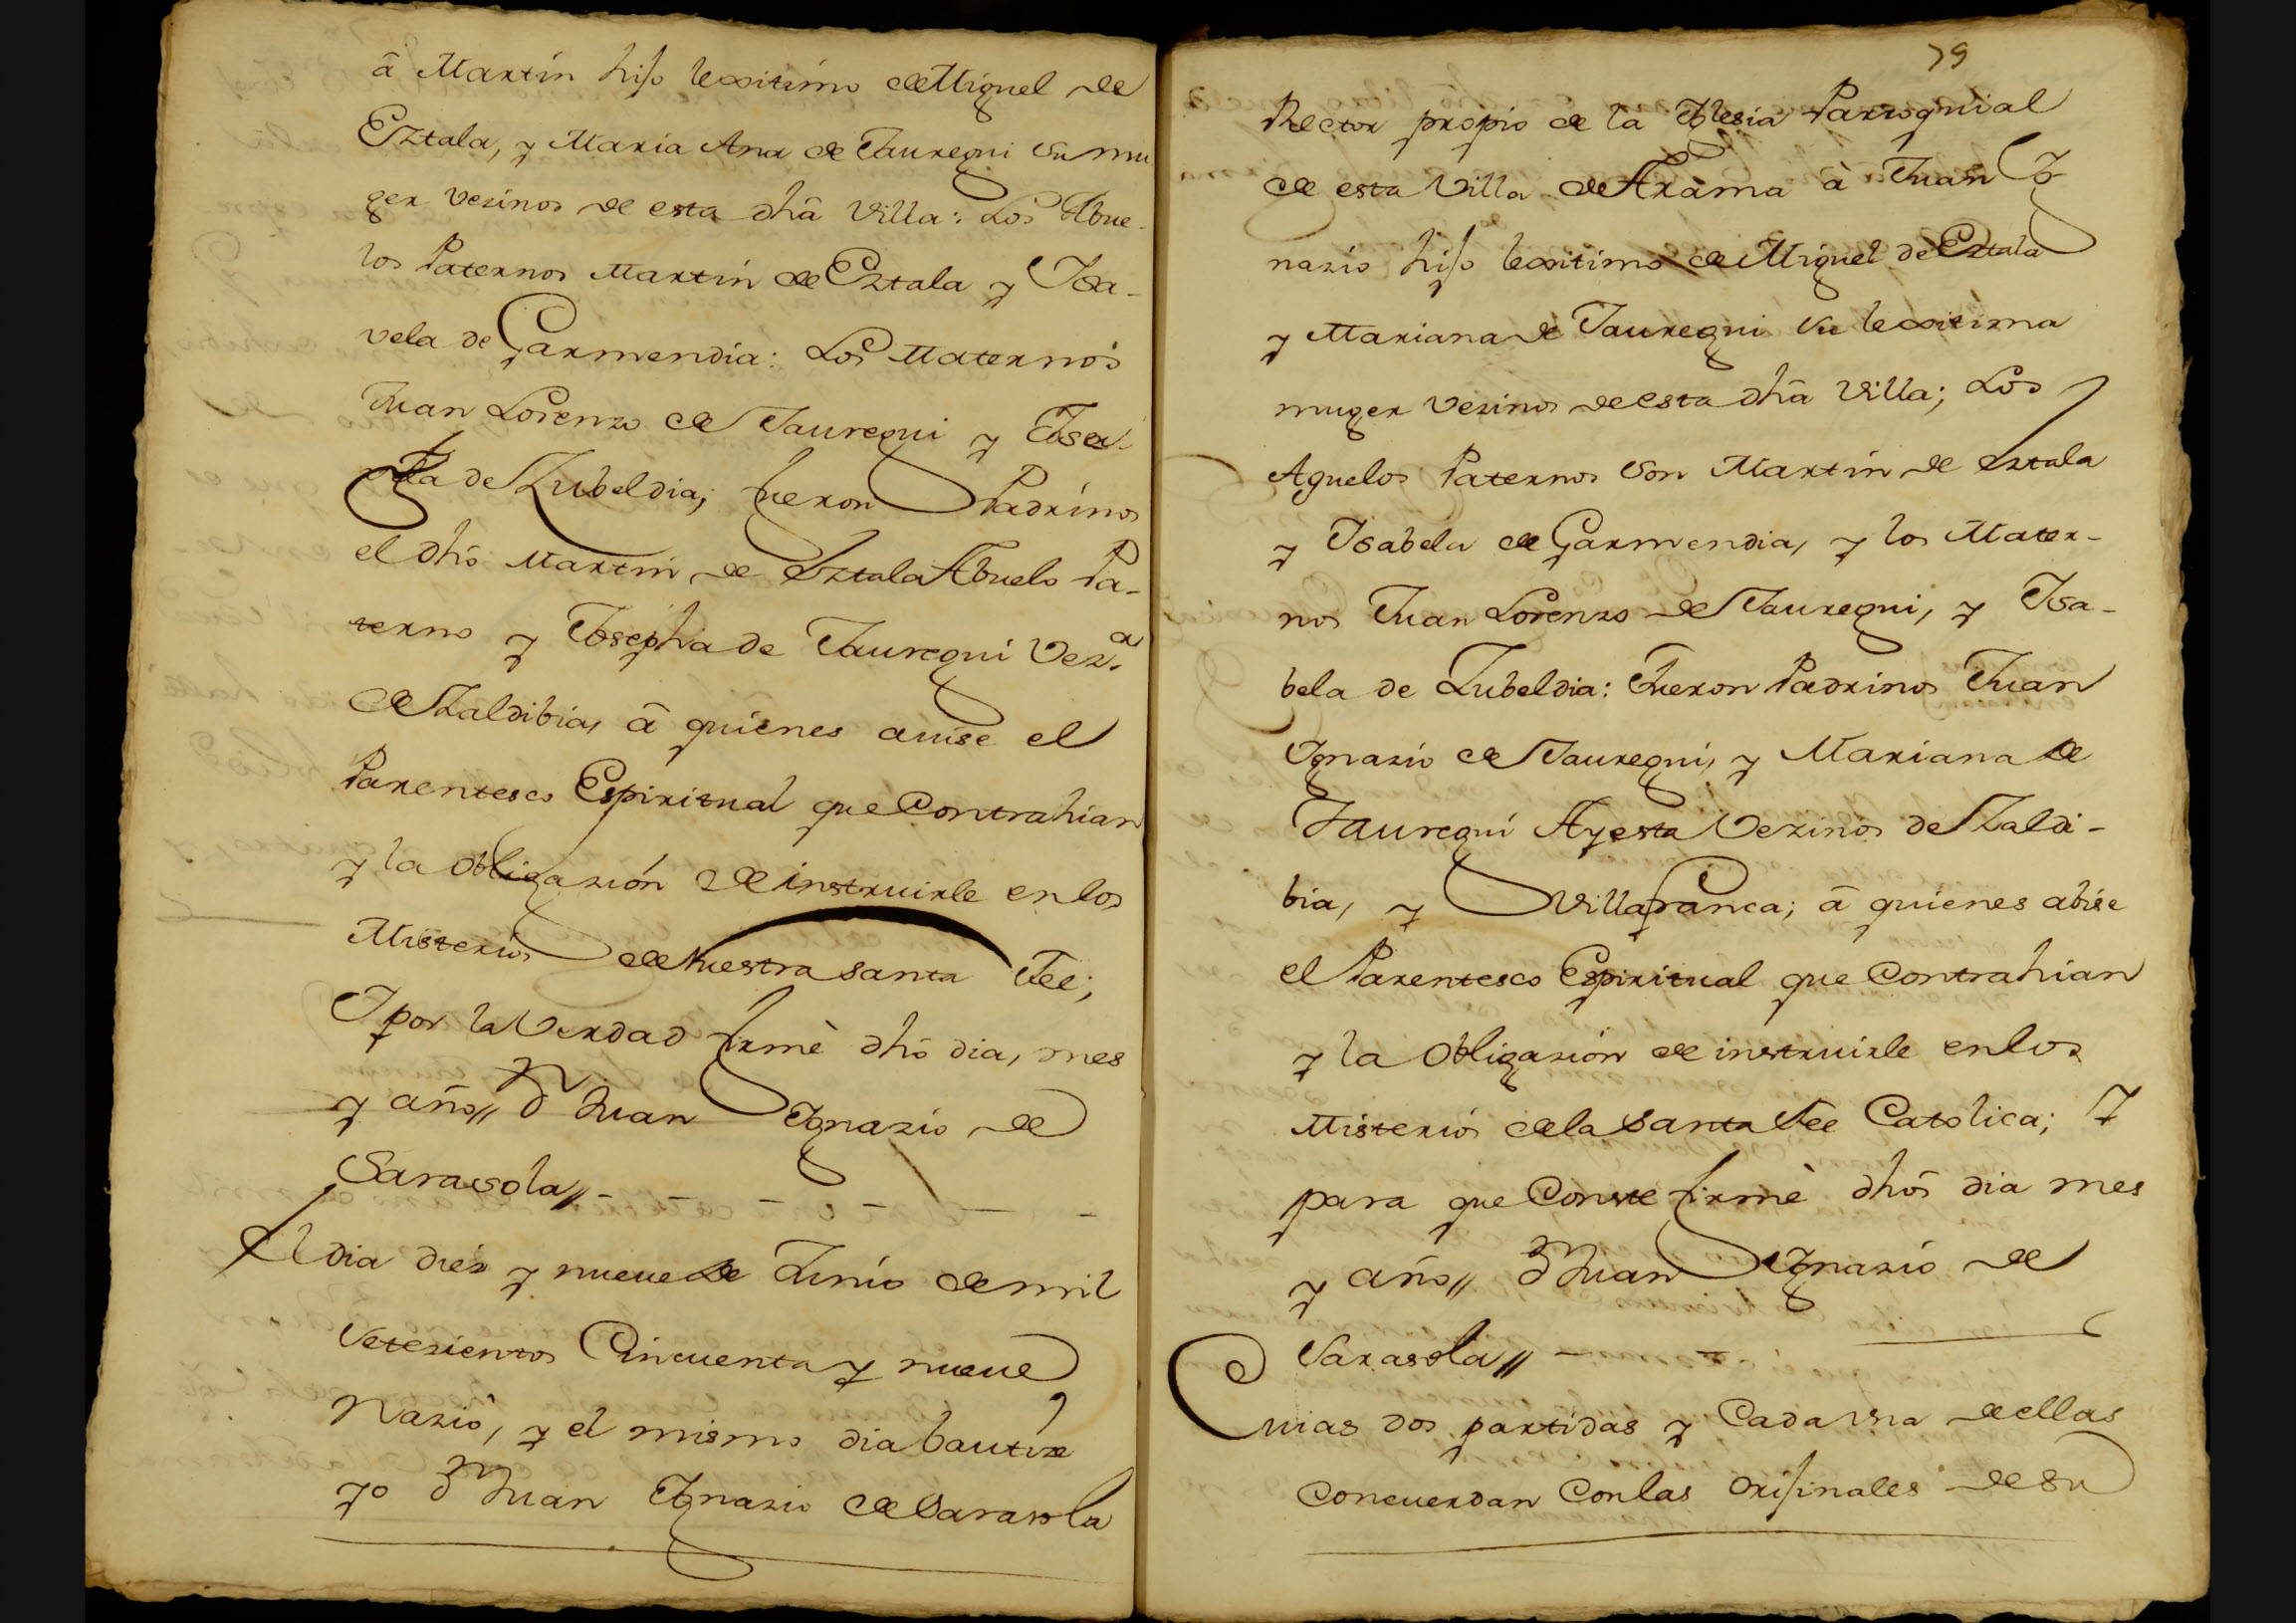 â Martin hijo lexitimo de Miguel de
Eztala, y Maria Ana de Jauregui su mu
ger vezinos de esta dhâ Villa: Los Abue-
los Paternos Martin de Eztala y Isa-
vela de Garmendia: Los Maternos
Juan Lorenzo de Jauregui y Isa-
vela de Zubeldia; fueron Padrinos
el dhô Martin de Eztala Abuelo Pa-
terno y Josepha de Jauregui Vez.ª
de Zaldibia, â quienes avise el
Parentesco Espiritual que Contrahian
y la obligazión de instruirle en los
Misterios de Nuestra santa Fee;
Y por la Verdad firmè dhô dia, mes
y año,, Dn Juan Ignazio de
Sarasola,, - - - - - -
El dia diez y nueue de Junio de mil
Setezientos Cincuenta y nueue
Naziò, y el mismo dia bautize
yo Dn Juan Ignazio de Sarasola
79
Rector propio de la Yglesia Parroquial
de esta Villa de Arama â Juan Yg
nazio hijo lexitimo de Miguel de Eztala
y Mariana de Jauregui su lexitima
muger vezinos de esta dhâ Villa; Los
Aguelos Paternos son Martin de Eztala
y Isabela de Garmendia, y los Mater-
nos Juan Lorenzo de Jauregui, y Isa-
bela de Zubeldia: Fueron Padrinos Juan
Ignazio de Jauregui, y Mariana de
Jauregui Ayesta Vezinos de Zaldi-
bia, y Villafranca; â quienes abise
el Parentesco Espiritual que Contrahian
y la obligazión de instruirle en los
Misterios de la Santa Fee Catolica; Y
para que Conste firmè dhôs dia mes
y año,, Dn Juan Ignazio de
Sarasola,, - -
Cuias dos partidas y Cada vna de ellas
concuerdan Con las orijinales de su